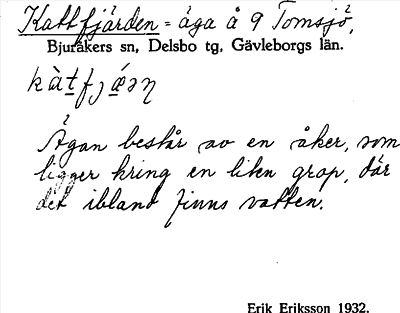 Kattfjärden = äga å 9 Tomsjö,
Bjuråkers sn, Delsbo tg, Gävleborgs län.
kàt̲fjǽən
Ägan består av en åker, som
ligger kring en liten grop, där
det ibland finns vatten.
Erik Eriksson 1932.